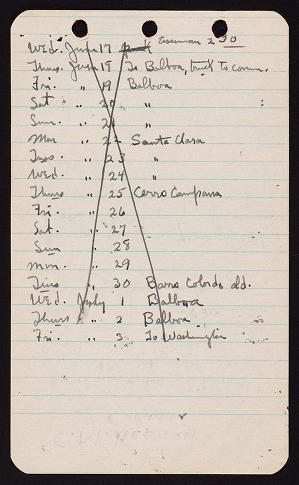 Wed. June 17 Eisenman 2 30
Thurs. June 18 To Balboa, truck to comm.
Fri. " 19 Balboa
Sat " 20 "
Sun. " 21 "
Mon " 22 Santa Clara
Tues. " 23 "
Wed. " 24 "
Thurs " 25 Cerro Campana
Fri. " 26
Sat. " 27
Sun " 28
Mon. " 29
Tues " 30 Barro Colorado Isld.
Wed. July 1 Balboa
Thurs " 2 Balboa
Fri. " 3 To Washington